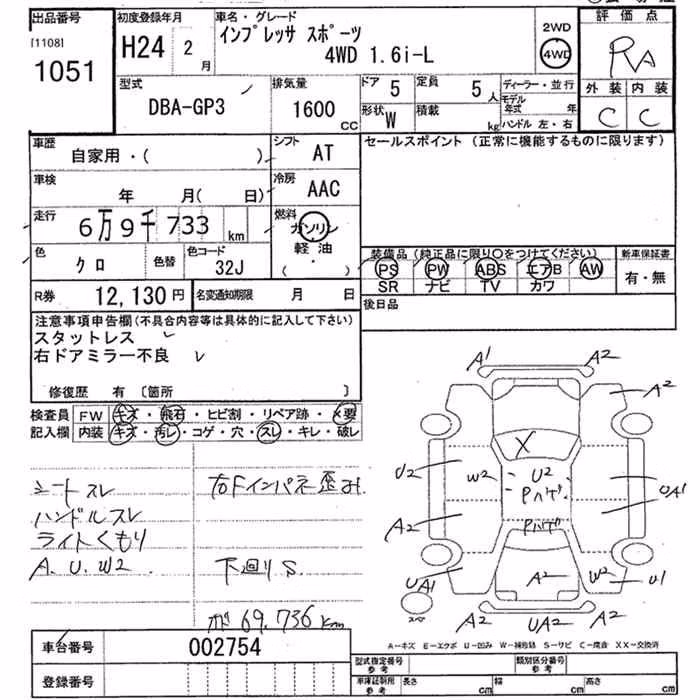 出品番号
[1108]
1051
初度登録年月
H24 2月
車名・グレード
インプレッサ スポーツ
4WD 1.6i-L
2WD
4WD
評価点
RA
外装 内装
C C
型式
DBA-GP3
排気量
1600 CC
ドア 5
定員 5人
形状 W
積載 kg
ディーラー・並行
モデル年式 年
ハンドル 左・右
車歴
自家用・( )
シフト AT
セールスポイント (正常に機能するものに限ります)
車検
年 月( 日)
冷房 AAC
走行
6万9千733 km
燃料
ガソリン
軽油
( ・ )
色
クロ
色替
色コード
32J
装備品 (純正品に限り○をつけてください)
PS PW ABS エアB AW
SR ナビ TV カワ
新車保証書
有・無
R券 12,130円
名変通知期限 月 日
後日品
注意事項申告欄(不具合内容等は具体的に記入して下さい)
スタットレス
右ドアミラー不良
修復歴 有 〔箇所 〕
検査員 FW キズ・飛石・ヒビ割・リペア跡・×要
記入欄 内装 キズ・汚レ・コゲ・穴・スレ・キレ・破レ
シートスレ
ハンドルスレ
ライトくもり
A.U.W2
右Fインパネ歪み
下回りS
69,736km
A1 A2
A2
X
U2 W2 U2
Pハゲ
UA1
A2
Pハゲ
UA1 A2 W2 U1
スペア
A2 UA2 A2
A-キズ E-エクボ U-凹み W-補修跡 S-サビ C-腐食 XX-交換済
車台番号 002754
登録番号
型式指定番号 参考
類別区分番号 参考
車庫証明用 参考
長さ cm 幅 cm 高さ cm